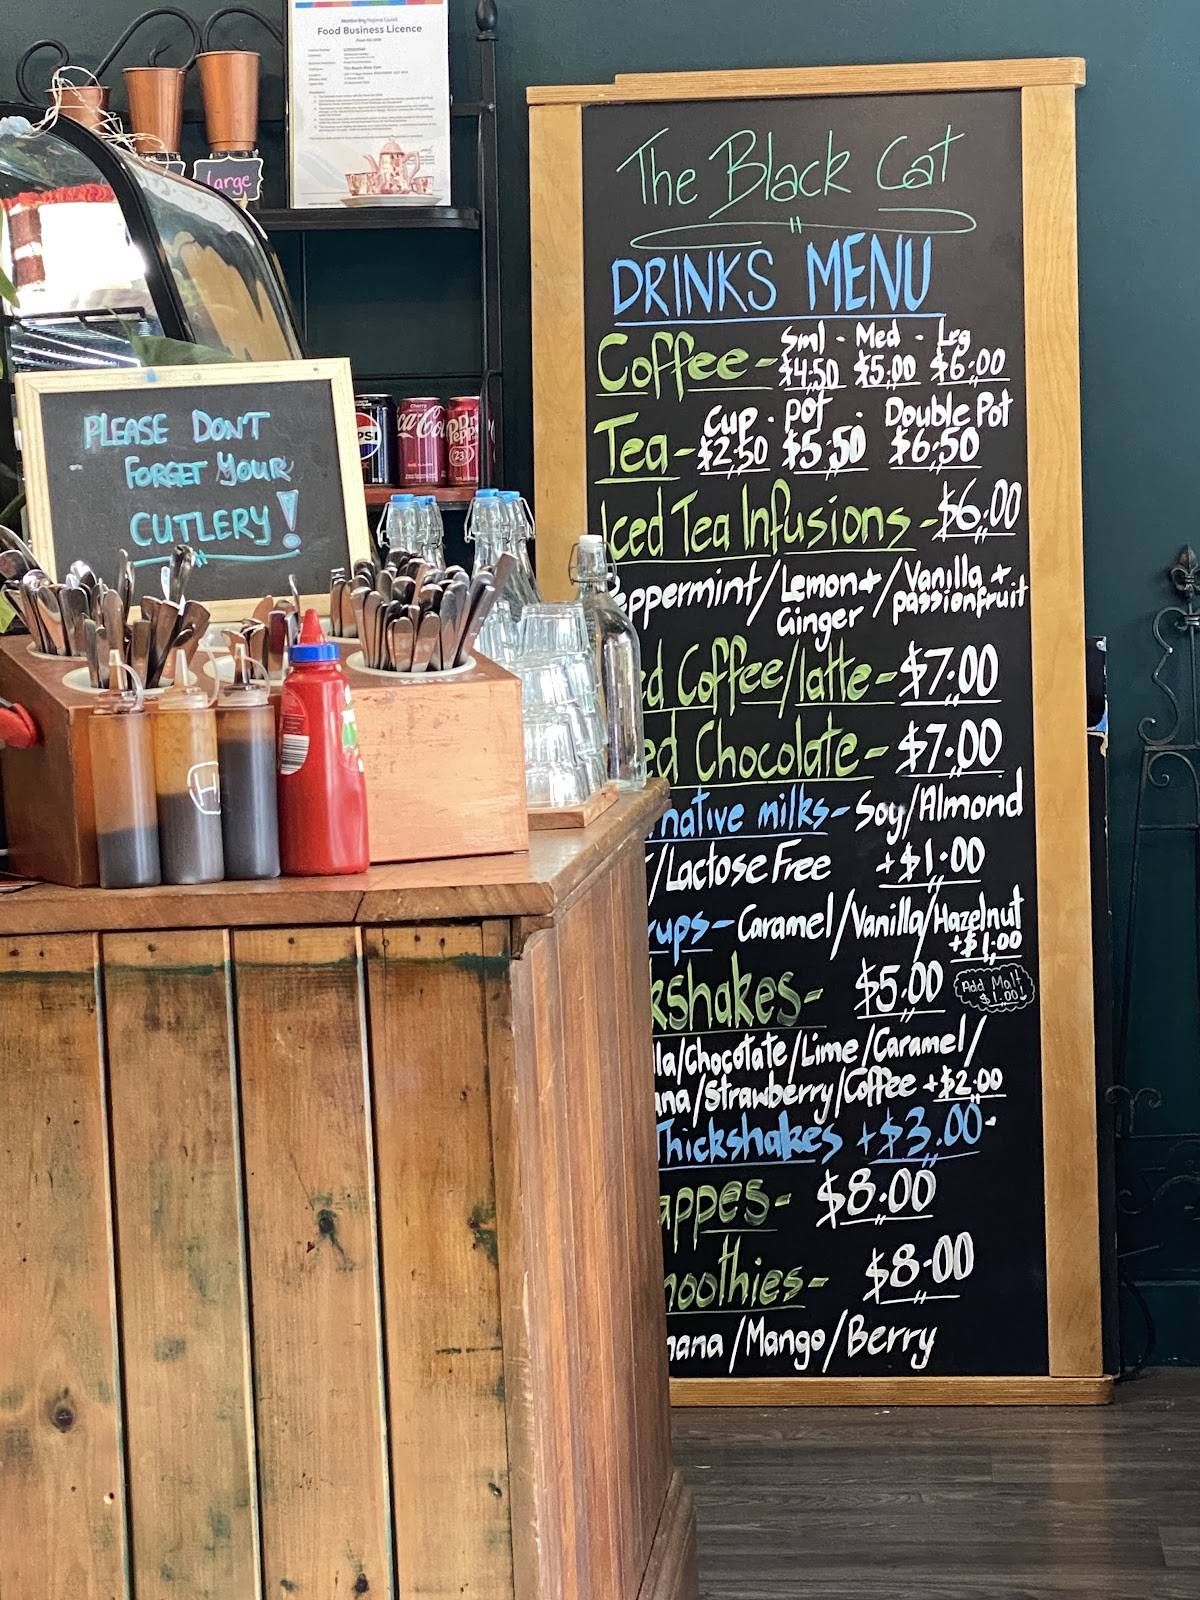 Moreton Bay Regional Council
Food Business Licence
Large
The Black Cat
DRINKS MENU
Sml - Med - Lrg
Coffee - $4.50 $5.00 $6.00
Cup . Pot . Double Pot
Tea - $2.50 $5.50 $6.50
Iced Tea Infusions - $6.00
Peppermint / Lemon + Ginger / Vanilla + passionfruit
ed Coffee/latte - $7.00
ed Chocolate - $7.00
native milks - Soy/Almond
/Lactose Free +$1.00
rups - Caramel/Vanilla/Hazelnut
+$1.00
kshakes - $5.00
Add Malt
$1.00
lla/Chocolate/Lime/Caramel/
ana/Strawberry/Coffee +$2.00
Thickshakes +$3.00
appes - $8.00
moothies - $8.00
nana/Mango/Berry
PLEASE DON'T
FORGET YOUR
CUTLERY!
PSI
Cherry
Coca-Cola
Dr Pepper
23
H